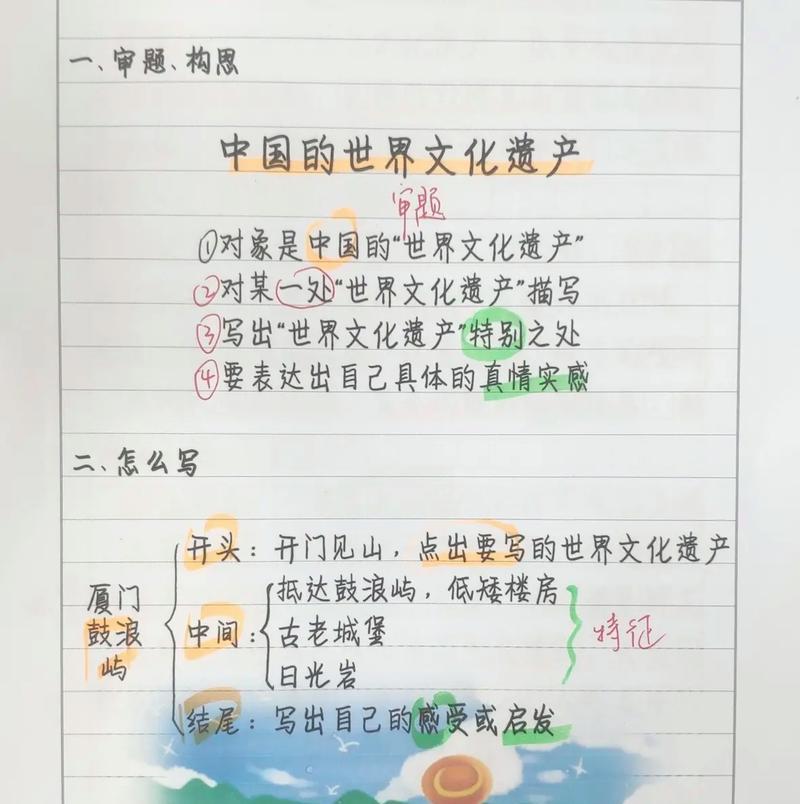 一、审题、构思
中国的世界文化遗产
审题
①对象是中国的“世界文化遗产”
②对某一处“世界文化遗产”描写
③写出“世界文化遗产”特别之处
④要表达出自己具体的真情实感
二、怎么写
厦门
鼓浪
屿
开头：开门见山，点出要写的世界文化遗产
中间：
抵达鼓浪屿，低矮楼房
古老城堡
日光岩
特征
结尾：写出自己的感受或启发